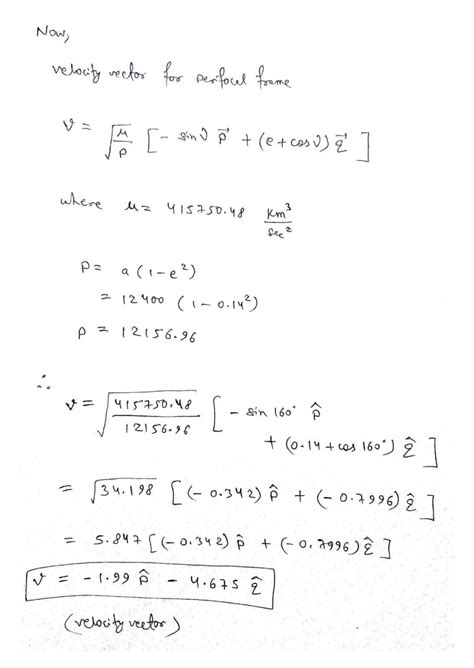 Now,
velocity vector for perifocal frame
v = √(μ/p) [- sinν p⃗ + (e + cosν) q⃗ ]
where μ = 415750.48 km³/sec²
p = a(1-e²)
= 12400 (1-0.14²)
p = 12156.96
∴
v = √(415750.48/12156.96) [ - sin 160° p̂
+ (0.14 + cos 160°) q̂ ]
= √34.198 [(-0.342) p̂ + (-0.7996) q̂ ]
= 5.847 [(-0.342) p̂ + (-0.7996) q̂ ]
v = -1.99 p̂ - 4.675 q̂
(velocity vector)